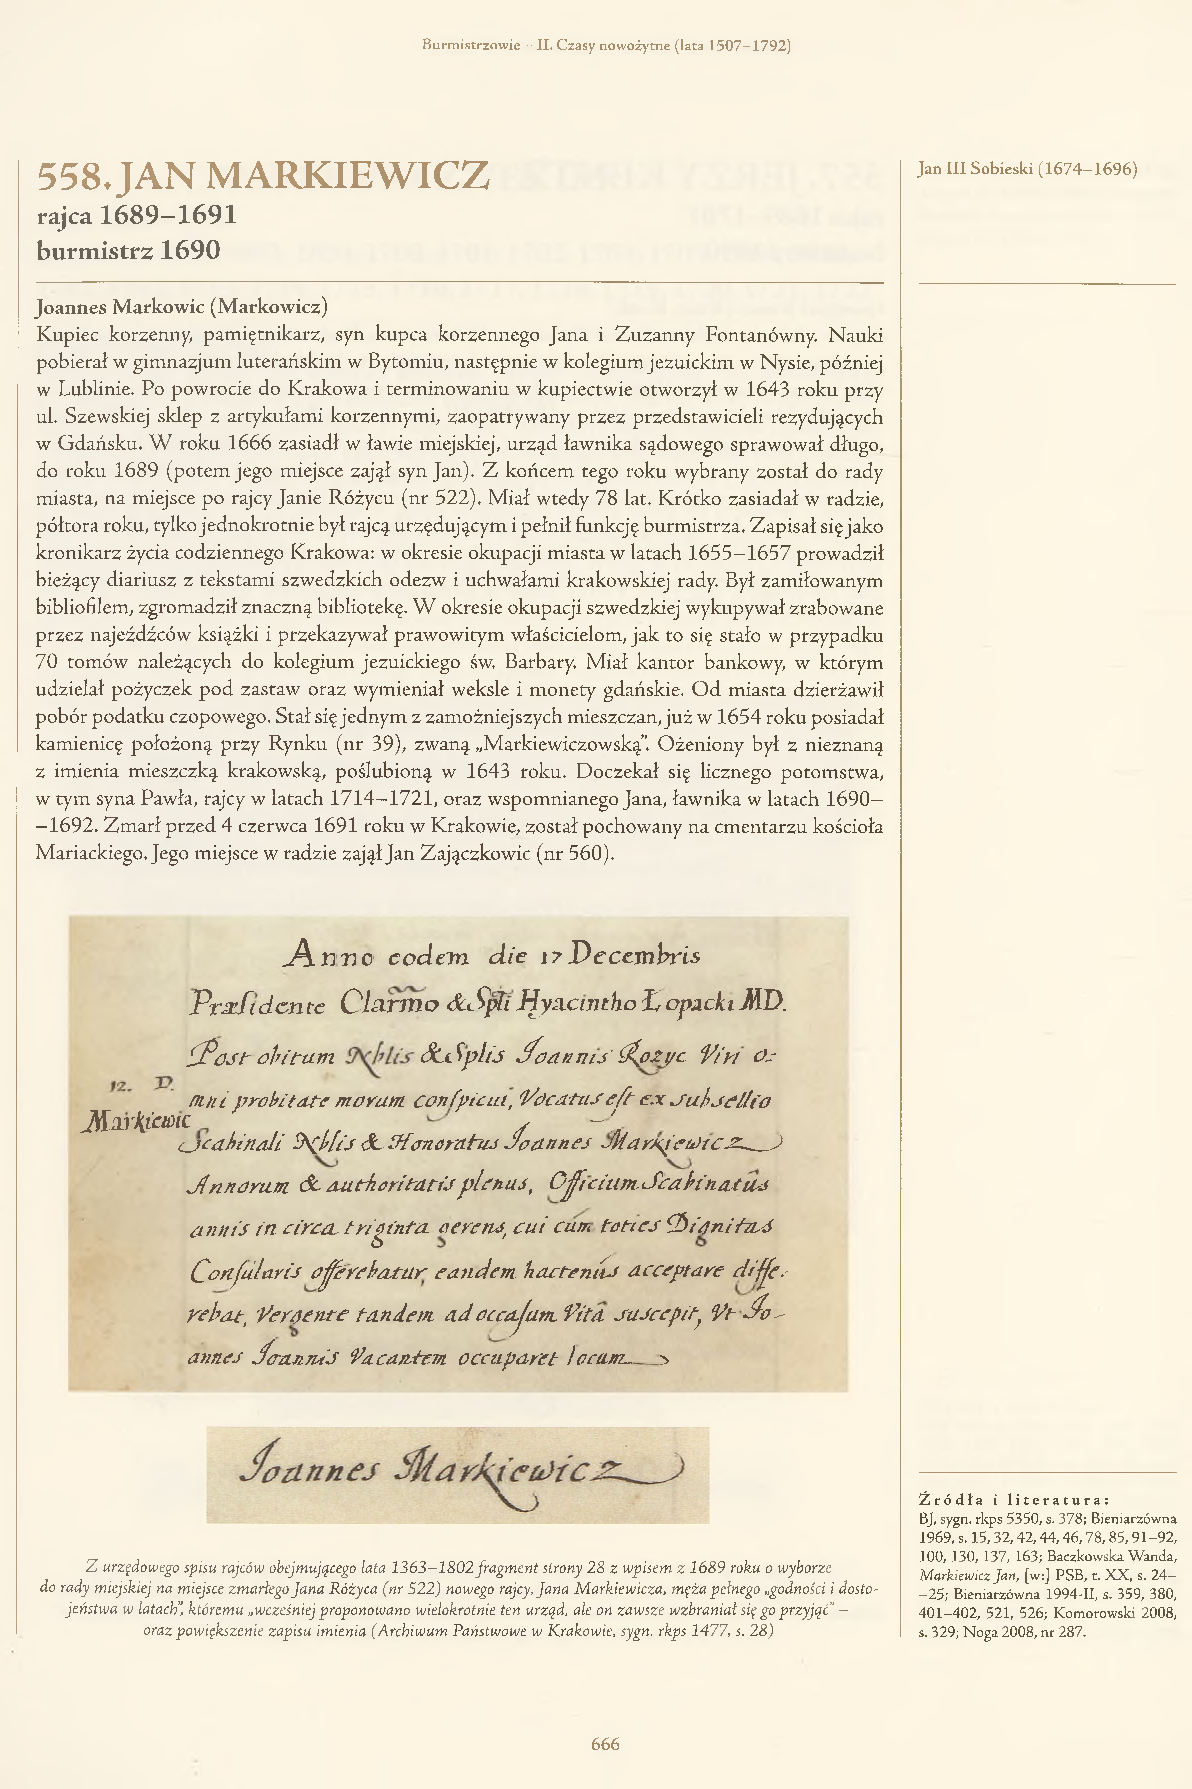 Burmistrzowie · II. Czasy nowożytne (lata 1507–1792)
558. JAN MARKIEWICZ
rajca 1689–1691
burmistrz 1690
Jan III Sobieski (1674–1696)
Joannes Markowic (Markowicz)
Kupiec korzenny, pamiętnikarz, syn kupca korzennego Jana i Zuzanny Fontanówny. Nauki
pobierał w gimnazjum luterańskim w Bytomiu, następnie w kolegium jezuickim w Nysie, później
w Lublinie. Po powrocie do Krakowa i terminowaniu w kupiectwie otworzył w 1643 roku przy
ul. Szewskiej sklep z artykułami korzennymi, zaopatrywany przez przedstawicieli rezydujących
w Gdańsku. W roku 1666 zasiadł w ławie miejskiej, urząd ławnika sądowego sprawował długo,
do roku 1689 (potem jego miejsce zajął syn Jan). Z końcem tego roku wybrany został do rady
miasta, na miejsce po rajcy Janie Różycu (nr 522). Miał wtedy 78 lat. Krótko zasiadał w radzie,
półtora roku, tylko jednokrotnie był rajcą urzędującym i pełnił funkcję burmistrza. Zapisał się jako
kronikarz życia codziennego Krakowa: w okresie okupacji miasta w latach 1655–1657 prowadził
bieżący diariusz z tekstami szwedzkich odezw i uchwałami krakowskiej rady. Był zamiłowanym
bibliofilem, zgromadził znaczną bibliotekę. W okresie okupacji szwedzkiej wykupywał zrabowane
przez najeźdźców książki i przekazywał prawowitym właścicielom, jak to się stało w przypadku
70 tomów należących do kolegium jezuickiego św. Barbary. Miał kantor bankowy, w którym
udzielał pożyczek pod zastaw oraz wymieniał weksle i monety gdańskie. Od miasta dzierżawił
pobór podatku czopowego. Stał się jednym z zamożniejszych mieszczan, już w 1654 roku posiadał
kamienicę położoną przy Rynku (nr 39), zwaną „Markiewiczowską”. Ożeniony był z nieznaną
z imienia mieszczką krakowską, poślubioną w 1643 roku. Doczekał się licznego potomstwa,
w tym syna Pawła, rajcy w latach 1714–1721, oraz wspomnianego Jana, ławnika w latach 1690–
–1692. Zmarł przed 4 czerwca 1691 roku w Krakowie, został pochowany na cmentarzu kościoła
Mariackiego. Jego miejsce w radzie zajął Jan Zajączkowic (nr 560).
Anno eodem die 17 Decembris
Præsidente Clarmo & Spli Hyacintho Łopacki MD.
Post obitum Nblis & Splis Joannis Rożyc Viri o-
12. D.
mni probitate morum conspicui, Vocatus est ex subsellio
Markiewic
Scabinali Nblis & Honoratus Joannes Markiewicz
Annorum & authoritatis plenus, Officium Scabinatûs
annis in circa triginta gerens, cui cùm toties Dignitas
Consularis offerebatur, eandem hactenùs acceptare diffe-
rebat, Vergente tandem ad occasum Vitâ suscepit, Vt Jo-
annes Joannis Vacantem occuparet locum
Joannes Markiewicz
Z urzędowego spisu rajców obejmującego lata 1363–1802 fragment strony 28 z wpisem z 1689 roku o wyborze
do rady miejskiej na miejsce zmarłego Jana Różyca (nr 522) nowego rajcy, Jana Markiewicza, męża pełnego „godności i dosto-
jeństwa w latach”, któremu „wcześniej proponowano wielokrotnie ten urząd, ale on zawsze wzbraniał się go przyjąć” –
oraz powiększenie zapisu imienia (Archiwum Państwowe w Krakowie, sygn. rkps 1477, s. 28)
Źródła i literatura:
BJ, sygn. rkps 5350, s. 378; Bieniarzówna
1969, s. 15, 32, 42, 44, 46, 78, 85, 91–92,
100, 130, 137, 163; Baczkowska Wanda,
Markiewicz Jan, [w:] PSB, t. XX, s. 24–
–25; Bieniarzówna 1994-II, s. 359, 380,
401–402, 521, 526; Komorowski 2008,
s. 329; Noga 2008, nr 287.
666